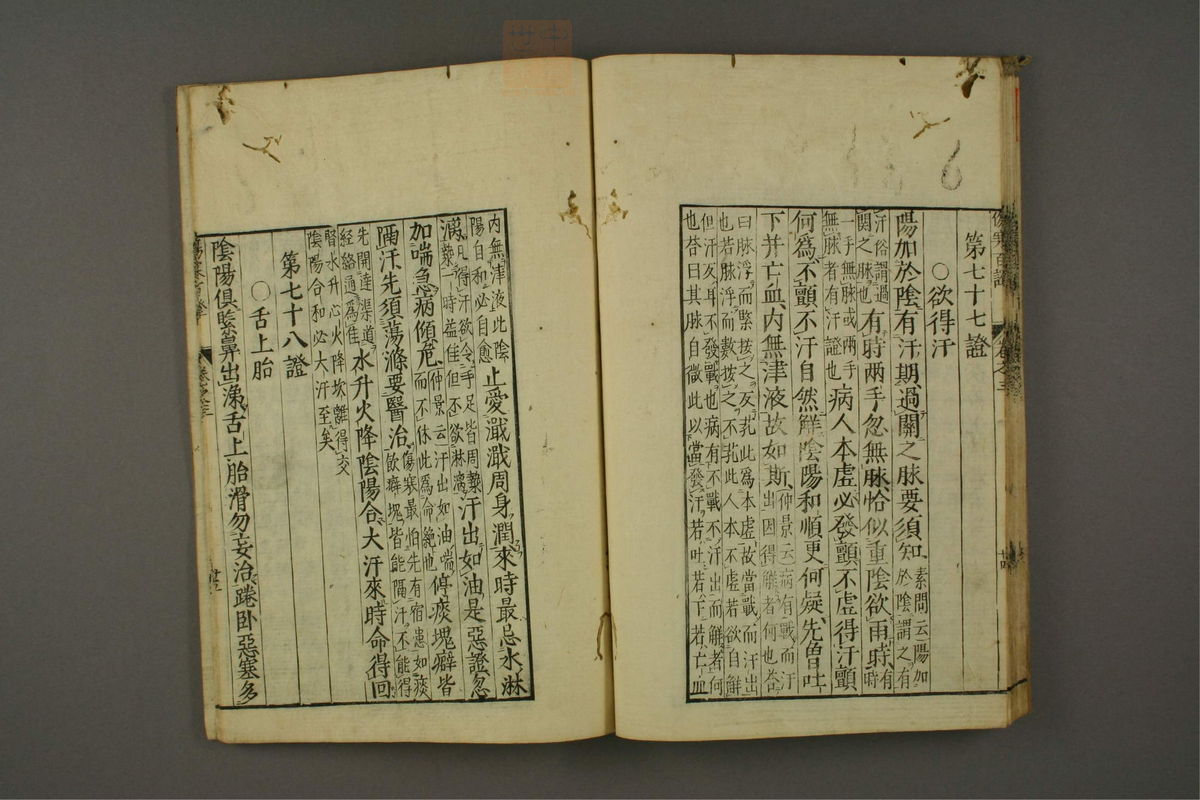 第七十七證
○欲得汗
陽加於陰有汗期過關之脉要須知素問云陽加於陰謂之有
汗俗謂過關之脉也有時两手忽無脉恰似重陰欲雨時有時
一手無脉或两手無脉者有汗證也病人本虚必發顫不虚得汗顫
何為不顫不汗自然觧陰陽和順更何疑先曽吐
下并亡血内無津液故如斯仲景云病有戰而汗出因得觧者何也荅
曰脉浮而緊按之反芤此為本虚故當戰而汗出
也若脉浮而數按之不芤此人本不虚若欲自觧
但汗出耳不發戰也病有不戰不汗出而觧者何
也荅曰其脉自微此以當發汗若吐若下若亡血
内無津液此陰
陽自和必自愈止愛濈濈周身潤來時最忌水淋
漓凡得汗欲令手足皆周漐漐一時益佳但不欲淋漓汗出如油是惡證忽
加喘急病傾危仲景云汗出如油喘而不休此為命絶也停痰塊癖皆
隔汗先須蕩滌要醫治傷寒最怕先有宿患如痰飲癖塊皆能隔汗不能得
先開達渠道經絡通為佳水升火降陰陽合大汗來時命得回
腎水升心火降坎離得交
陰陽合和必大汗至矣
第七十八證
○舌上胎
陰陽俱緊鼻出涕舌上胎滑勿妄治踡卧惡寒多